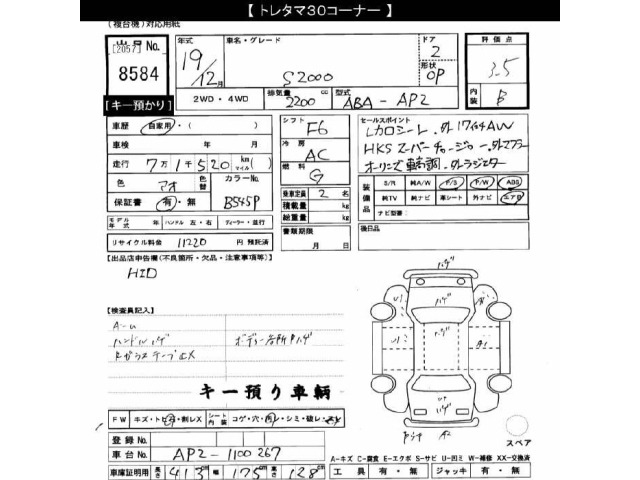 【 トレタマ30コーナー 】
(複台機)対応用紙
出品No.
(2057)
8584
【キー預かり】
年式
19年
12月
車名・グレード
S2000
ドア
2
形状
OP
評価点
3.5
内装
B
2WD・4WD
排気量
2200 cc
型式
ABA - AP2
車歴
自家用・( )
車検 年 月
走行 7万1千520 km マイル
色
アオ
色替
カラーNo.
B545P
保証書 有・無
シフト
F6
冷房
AC
燃料
G
乗車定員 2 名
積載量 kg
総重量 kg
書類期限
月 日
セールスポイント
Lカロシート. 外17インチAW
HKSスーパーチャージャー. 外マフラー
オーリンズ車高調. 外ラジエター
装備品
S/R 純A/W P/S P/W ABS
純TV 純ナビ 革シート 外ナビ エアB
ナビ型番
後日品
モデル年式 年 ハンドル 左・右 ディーラー・並行
リサイクル料金 11220 円 預託済
【出品店申告欄(不良箇所・欠品・注意事項等)】
HID
【検査員記入】
A-U
ハンドルハゲ
ボディー各所Pハゲ
キー預り車両
FW キズ・トビ石・割レX シート内装 コゲ・穴・汚レ・シミ・破レ・スレ
登録No.
車台No. AP2-1100267
車庫証明用 長さ 413 cm 幅 175 cm 高さ 128 cm
スペア
A=キズ C=腐食 E=エクボ S=サビ U=凹ミ W=補修 XX=交換済
工具 有・無 ジャッキ 有・無